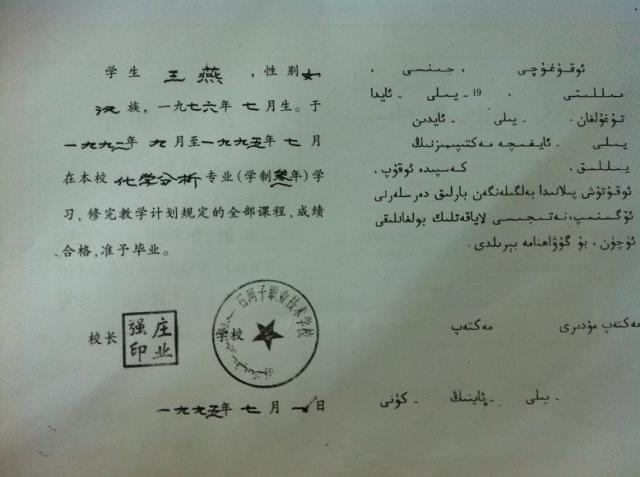 学生 王燕 ,性别 女
汉 族, 一九七六年 七 月生。于
一九九二年 九 月至一九九五年 七 月
在本校 化学分析 专业(学制叁年)学
习, 修完教学计划规定的全部课程, 成绩
合格, 准予毕业。
校长
庄业强印
学校
石河子职业技术学校
一九九五年 七 月 一日
ئوقۇغۇچى ، جىنسى ،
مىللىتى ، 19 ـ يىلى ـ ئايدا
تۇغۇلغان. ـ يىلى ـ ئايدىن
يىلى ـ ئايغىچە مەكتىپىمىزنىڭ
يىللىق. كەسپىدە ئوقۇپ،
ئوقۇتۇش پىلانىدا بەلگىلەنگەن بارلىق دەرسلەرنى
ئۆگىنىپ، نەتىجىسى لاياقەتلىك بولغانلىقى
ئۈچۈن، بۇ گۇۋاھنامە بېرىلدى.
مەكتەپ مۇدىرى مەكتەپ
ـ يىلى ـ ئاينىڭ ـ كۈنى